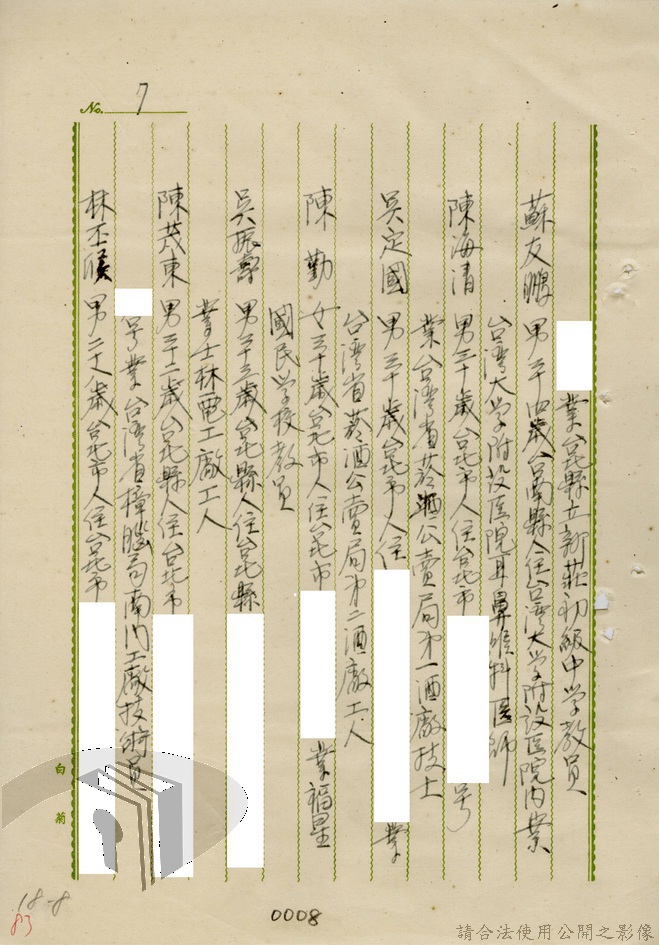 No. 7
業台北縣立新莊初級中学教員
蘇友鵬 男二十四歲台南縣人住台灣大学附設医院內業
台湾大学附設医院耳鼻喉科医師
陳海清 男三十歲台北市人住台北市 号
業台湾省菸酒公賣局第一酒廠技士
吳定國 男三十歲台北市人住 業
台湾省菸酒公賣局第二酒廠工人
陳勤 女三十歲台北市人住台北市 業福星
國民学校教員
吳振壽 男三十三歲台北縣人住台北縣
業士林電工廠工人
陳茂東 男三十二歲台北縣人住台北市
号業台湾省樟腦局南门工廠技術員
林丕 男二十八歲台北市人住台北市
白菊
18-8
83
0008
請合法使用公開之影像